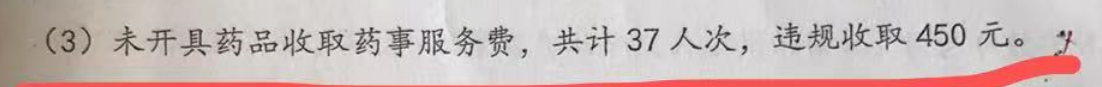 （3）未开具药品收取药事服务费，共计 37 人次，违规收取 450 元。